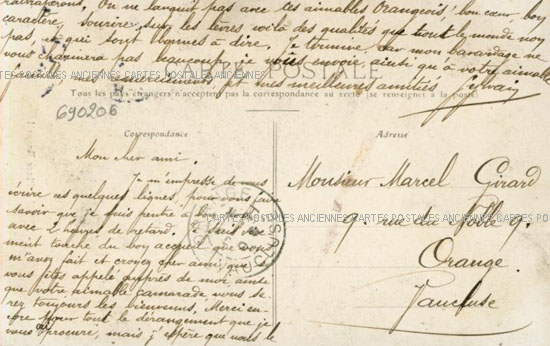 rattraperons. On ne languit pas avec les aimables Orangeois! bon cœur, bon
caractère, sourire sur les lèvres voilà des qualités que tout le monde n'a
pas, et qui sont bonnes à dire. Je termine car mon bavardage ne
vous charmera pas beaucoup, je vous envoie ainsi qu'à votre aimable
mes meilleures amitiés
CARTE POSTALE
ANCIENNES CARTES POSTALES ANCIENNES CARTES POSTALES ANCIENNES
Tous les pays étrangers n'acceptent pas la correspondance au recto (se renseigner à la poste)
690206
Correspondance
Mon cher ami.
Je m'empresse de vous
écrire ces quelques lignes, pour vous faire
savoir que je suis rentré à bon port
avec 2 heures de retard. Je suis vrai-
ment touché du bon accueil que vous
m'avez fait et croyez cher ami que
vous êtes appelé auprès de moi ainsi
que votre aimable camarade vous se-
rez toujours les bienvenus. Merci en-
core pour tout le dérangement que je
vous ai procuré, mais j'espère que nous le
Adresse
Monsieur Marcel Girard
9. rue du Noble 9.
Orange
Vaucluse
CARTES POSTALES ANCIENNES CARTES POSTALES ANCIENNES CARTES PO